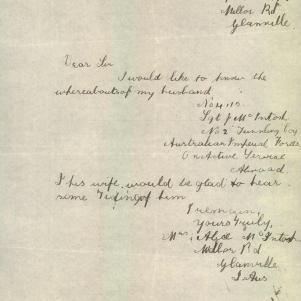 Millor Rd
Glanville.
Dear Sir
I would like to know the
whereabouts of my husband
Sgt J McIntosh
No 2 Tunnling Coy
Australian Imperial Force
On Active Service
Abroad
I his wife. would be glad to hear
some Tiding of him
I remain,
Yours Truly,
Mrs. Alice McIntosh
Millor Rd
Glanville
S. Aus